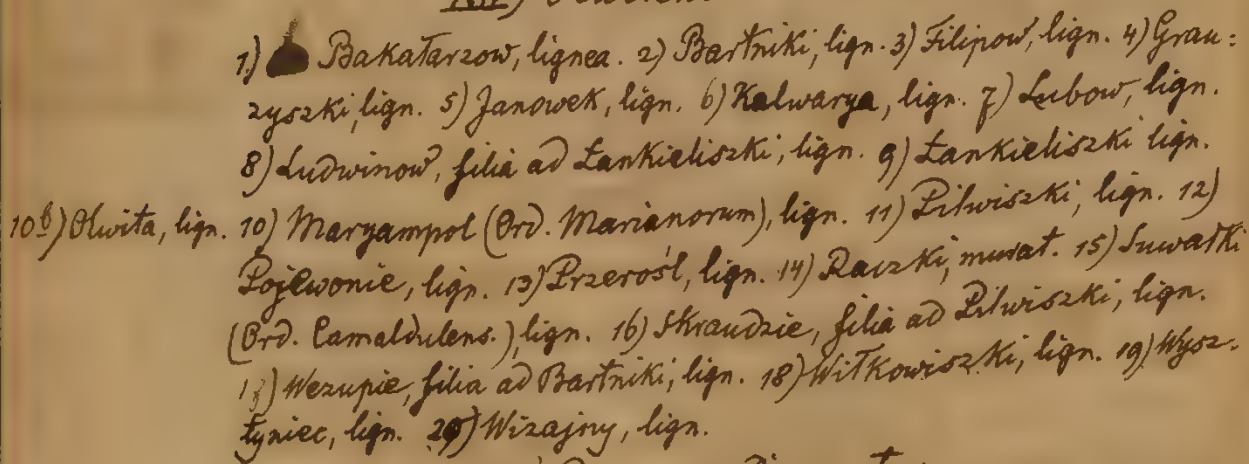 1.) Bakałarzow, lignea. 2) Bartniki, lign. 3) Filipow, lign. 4) Grau:
zyszki, lign. 5) Janowek, lign. 6) Kalwarya, lign. 7) Lubow, lign.
8) Ludwinow, filia ad Łankieliszki, lign. 9) Łankieliszki lign.
10b) Olwita, lign. 10) Maryampol (Ord. Marianorum), lign. 11) Pilwiszki, lign. 12)
Pojewonie, lign. 13) Przerośl, lign. 14) Raczki, murat. 15) Suwałki
(Ord. Camaldulens.), lign. 16) Skraudzie, filia ad Pilwiszki, lign.
17) Wezupie, filia ad Bartniki, lign. 18) Wiłkowiszki, lign. 19) Wysz-
tyniec, lign. 20) Wizajny, lign.